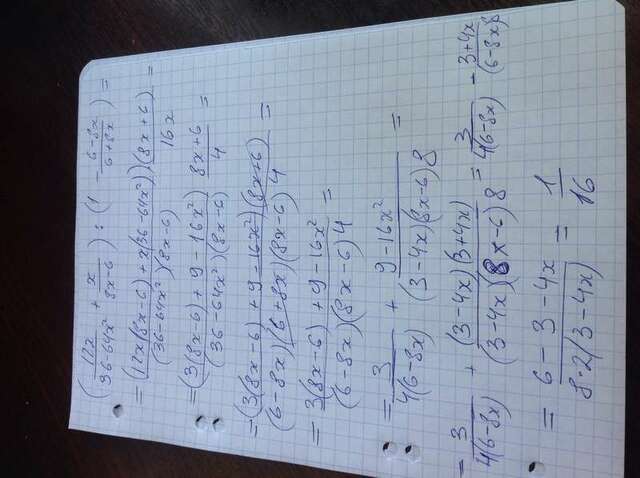 (12x/(36-64x²) + x/(8x-6)) : (1 - (6-8x)/(6+8x)) =
= (12x(8x-6) + x(36-64x²))(8x+6) / (36-64x²)(8x-6) 16x =
= (3(8x-6) + 9 - 16x²) / (36-64x²)(8x-6) (8x+6)/4 =
= (3(8x-6) + 9 - 16x²)(8x+6) / (6-8x)(6+8x)(8x-6) 4 =
= 3(8x-6) + 9 - 16x² / (6-8x)(8x-6)4 =
= 3/4(6-8x) + 9-16x²/(3-4x)(8x-6)8 =
= 3/4(6-8x) + (3-4x)(3+4x)/(3-4x)(8x-6)8 = 3/4(6-8x) - 3+4x/(6-8x)8
= 6-3-4x/8·2(3-4x) = 1/16